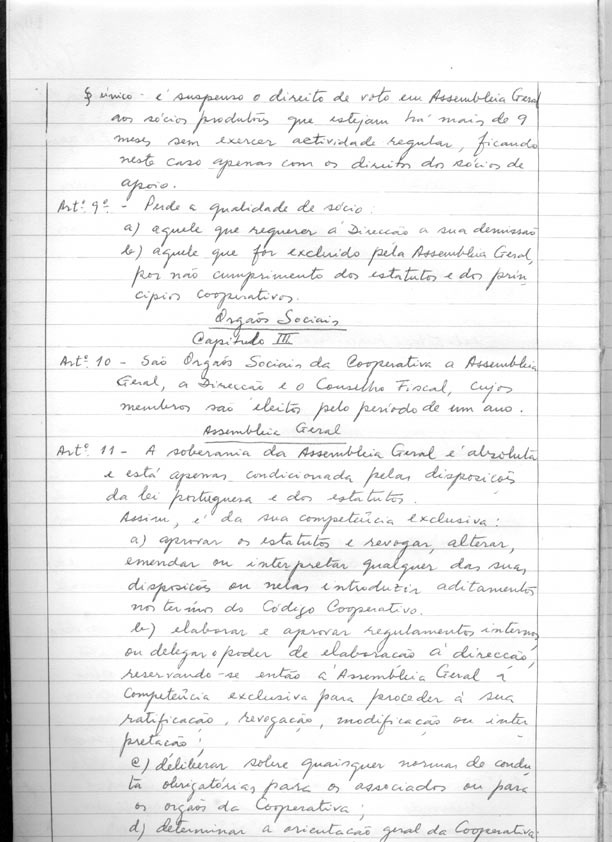 § único - é suspenso o direito de voto em Assembleia Geral
aos sócios produtores que estejam há mais de 9
meses sem exercer actividade regular, ficando
neste caso apenas com os direitos dos sócios de
apoio.
Artº. 9º. - Perde a qualidade de sócio:
a) aquele que requerer à Direcção a sua demissão
b) aquele que fôr excluido pela Assembleia Geral,
por não cumprimento dos estatutos e dos prin
cipios cooperativos.
Orgãos Sociais
Capitulo III
Artº. 10 - São Orgãos Sociais da Cooperativa a Assembleia
Geral, a Direcção e o Conselho Fiscal, cujos
membros são eleitos pelo período de um ano.
Assembleia Geral
Artº. 11 - A soberania da Assembleia Geral é absoluta
e está apenas condicionada pelas disposições
da lei portuguesa e dos estatutos.
Assim, é da sua competência exclusiva:
a) aprovar os estatutos e revogar, alterar,
emendar ou interpretar qualquer das suas
disposições ou nelas introduzir aditamentos
nos termos do Código Cooperativo.
b) elaborar e aprovar regulamentos internos,
ou delegar o poder de elaboração à direcção,
reservando-se então à Assembleia Geral a
competência exclusiva para proceder à sua
ratificação, revogação, modificação ou inter
pretação;
c) deliberar sobre quaisquer normas de condu
ta obrigatórias para os associados ou para
os orgãos da Cooperativa;
d) determinar a orientação geral da Cooperativa